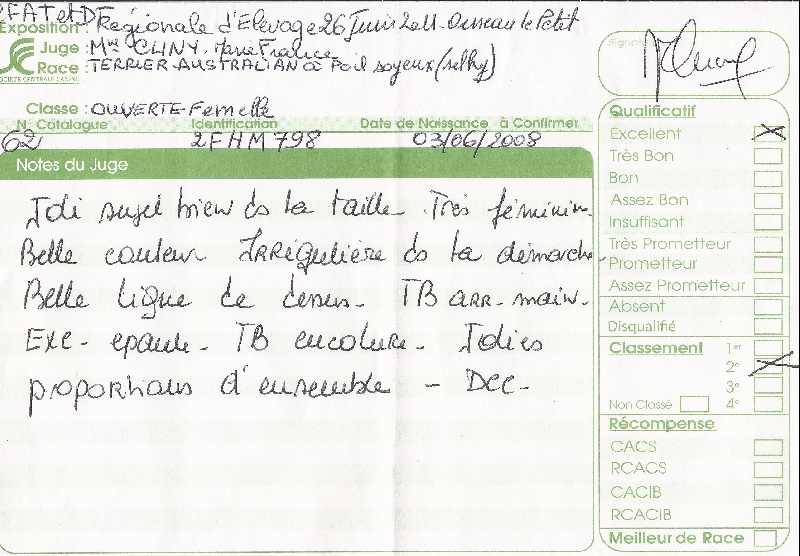 CFAT et DT
Exposition : Régionale d'Elevage 26 Juin 2011 - Osneau le Petit
Juge : Mme CLINY. Marie France
Race : TERRIER AUSTRALIAN à Poil soyeux (silky)
SOCIÉTÉ CENTRALE CANINE
Signature
Classe : OUVERTE - Femelle
N° Catalogue Identification Date de Naissance à Confirmer
62 2FHM798 03/06/2008
Notes du Juge
Joli sujet bien ds la taille. Très féminin.
Belle couleur Irrégulière ds la démarche.
Belle ligne de dessus - TB arr. main.
Exc - epaule - TB encolure - Jolies
proportions d'ensemble -
Qualificatif
Excellent
Très Bon
Bon
Assez Bon
Insuffisant
Très Prometteur
Prometteur
Assez Prometteur
Absent
Disqualifié
Classement 1er
2e
3e
Non Classé 4e
Récompense
CACS
RCACS
CACIB
RCACIB
Meilleur de Race